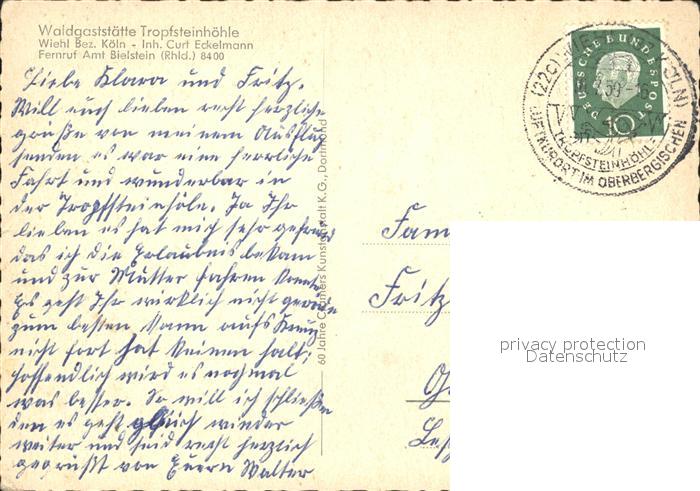 Waldgaststätte Tropfsteinhöhle
Wiehl Bez. Köln - Inh. Curt Eckelmann
Fernruf Amt Bielstein (Rhld.) 8400
Liebe Klara und Fritz.
Will euch lieben recht herzliche
grüße von meinem Ausflug
senden es war eine herrliche
Fahrt und wunderbar in
der Tropfsteinhöle. Ja Ihr
lieben es hat mich sehr gefreut
das ich die Erlaubnis bekam
und zur Mutter fahren konnte
Es geht Ihr wirklich nicht gerade
zum besten kann aufs Kreuz
nicht fort hat keinen halt,
hoffendlich wird es nochmal
was besser. So will ich schließen
den es geht gleich wieder
weiter und seid recht herzlich
gegrüßt von Euern Walter
60 Jahre Cramers Kunstanstalt K.G., Dortmund
DEUTSCHE BUNDESPOST
10
(22c) WIEHL (KÖLN)
59
TROPFSTEINHÖHLE
LUFTKURORT IM OBERBERGISCHEN
Fam
Fritz
privacy protection
Datenschutz